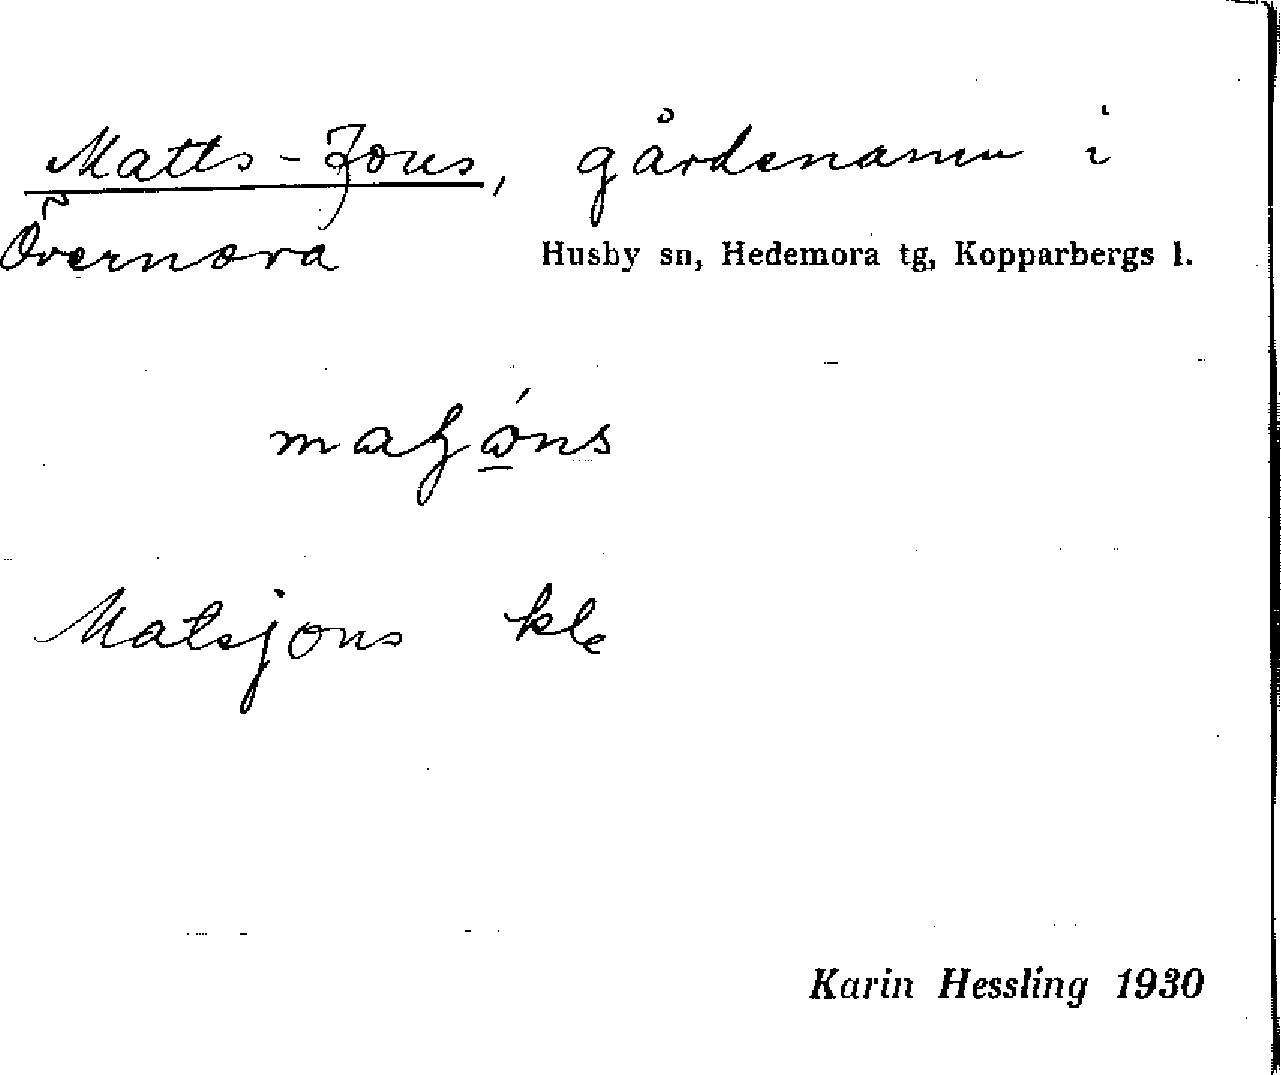 Matts-Jons, gårdsnamn i
Övernora Husby sn, Hedemora tg, Kopparbergs l.
Matsjons kle
Karin Hessling 1930